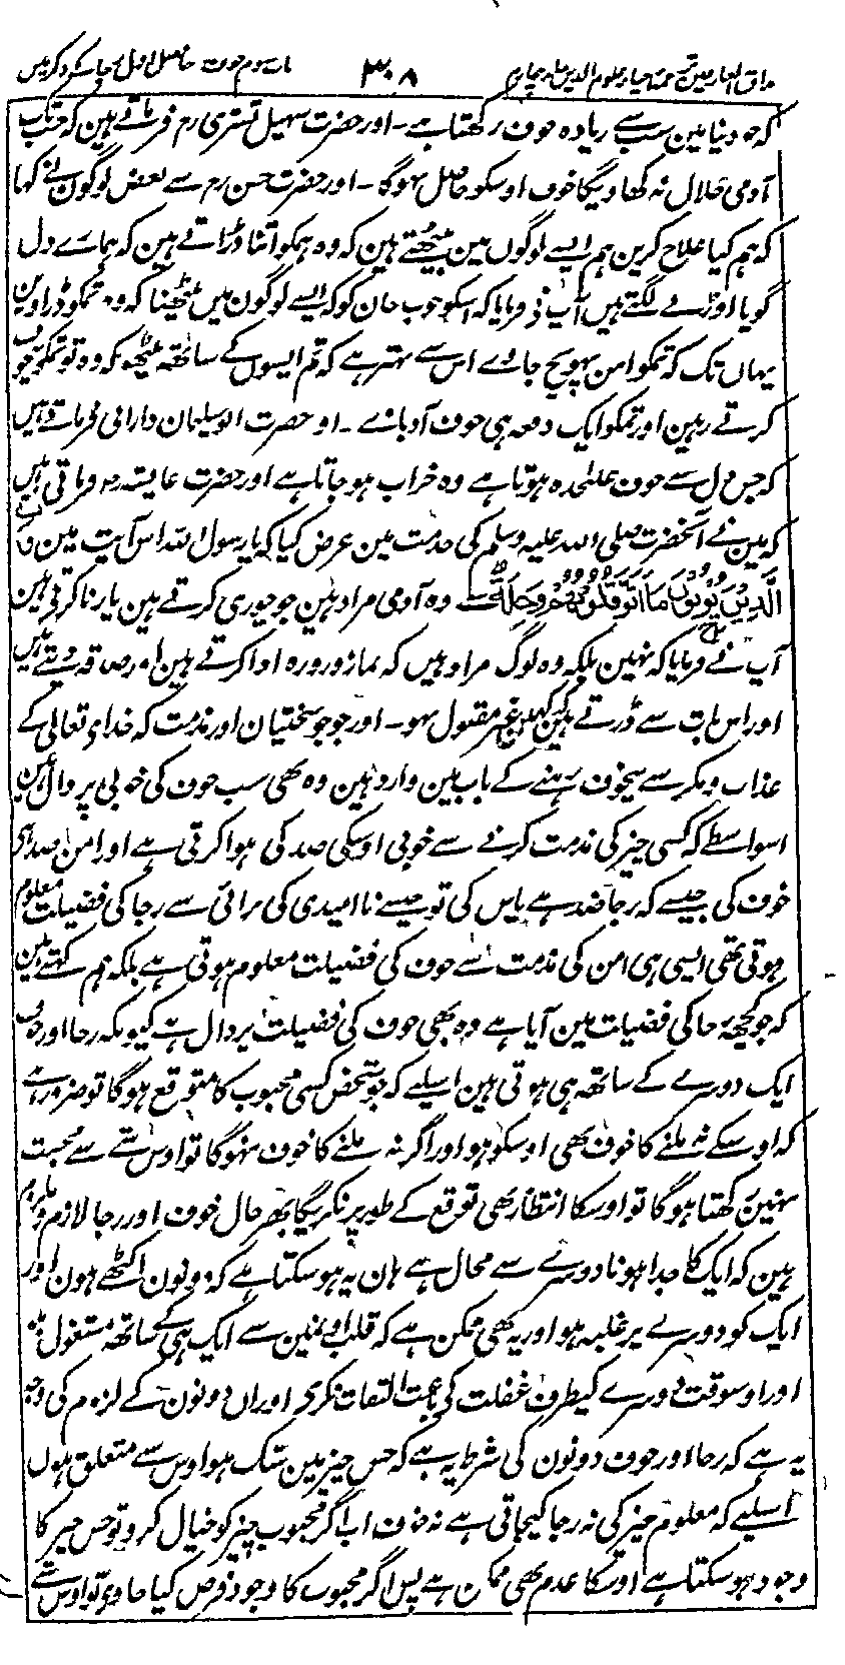 مذاق العارفین ترجمہ احیاء علوم الدین جلد چہارم ۳۰۸ باب سوم خوف
کہ جو دنیا مین سب سے زیادہ خوف رکھتا ہے ۔ اور حضرت سہیل تستری رم فرماتے ہین کہ جب تک
آدمی حلال نہ کھاویگا خوف اوسکو حاصل نہوگا ۔ اور حضرت حسن رم سے بعض لوگون نے کہا
کہ ہم کیا علاج کرین ہم ایسے لوگون مین بیٹھتے ہین کہ وہ ہمکو اتنا ڈراتے ہین کہ ہمارے دل
گویا اوڑنے لگتے ہین آپ نے فرمایا کہ اسکو خوب جان کو کہ ایسے لوگون مین بیٹھنا کہ وہ تمکو ڈراوین
یہان تک کہ تمکو امن پہونچ جاوے اس سے بہتر ہے کہ تم ایسون کے ساتھ بیٹھو کہ وہ تو تمکو بیخوف
کرتے رہین اور تمکو ایک دفعہ ہی خوف آدبائے ۔ اور حضرت ابو سلیمان دارانی فرماتے ہین
کہ جس دل سے خوف علٰحدہ ہوتا ہے وہ خراب ہو جاتا ہے اور حضرت عایشہ رض فرماتی ہین
کہ مین نے آنحضرت صلی اللہ علیہ وسلم کی خدمت مین عرض کیا کہ یا رسول اللہ اس آیت مین وَ
الَّذِیْنَ یُؤْتُوْنَ مَا اٰتَوْا وَّقُلُوْبُهُمْ وَجِلَةٌ وہ آدمی مراد ہین جو چوری کرتے ہین یا زنا کرتے ہین
آپ نے فرمایا کہ نہین بلکہ وہ لوگ مراد ہین کہ نماز و روزہ ادا کرتے ہین اور صدقہ دیتے ہین
اور اس بات سے ڈرتے ہین کہ کہین غیر مقبول نہو ۔ اور جو جو سختیان اور مذمت کہ خدای تعالی کے
عذاب و مکر سے بیخوف رہنے کے باب مین وارد ہین وہ بھی سب خوف کی خوبی پر دال ہین
اسواسطے کہ کسی چیز کی مذمت کرنے سے خوبی اوسکی ضد کی ہوا کرتی ہے اور امن ضد ہے
خوف کی جیسے کہ رجا ضد ہے یاس کی تو جیسے نا امیدی کی برائی سے رجا کی فضیلت معلوم
ہوتی تھی ایسی ہی امن کی مذمت سے خوف کی فضیلت معلوم ہوتی ہے بلکہ ہم کہتے ہین
کہ جو کچھ رجا کی فضیلت مین آیا ہے وہ بھی خوف کی فضیلت پر دال ہے کیونکہ رجا اور خوف
ایک دوسرے کے ساتھ ہی ہوتی ہین اسلیے کہ جو شخص کسی محبوب کا متوقع ہوگا تو ضرور ہے
کہ اوسکے نہ ملنے کا خوف بھی اوسکو ہو اور اگر نہ ملنے کا خوف نہوگا تو اوس شے سے محبت
نہین رکھتا ہوگا تو اوسکا انتظار بھی توقع کے طور پر نکریگا بہر حال خوف اور رجا لازم و ملزوم
ہین کہ ایک کا جدا ہونا دوسرے سے محال ہے ہان یہ ہو سکتا ہے کہ دونون اکٹھے ہون اور
ایک کو دوسرے پر غلبہ ہو اور یہ بھی ممکن ہے کہ قلب اونمین سے ایک ہی کے ساتھ مشغول ہو
اور اوسوقت دوسرے کیطرف غفلت کے باعث التفات نکرے اور ان دونون کے لزوم کی وجہ
یہ ہے کہ رجا اور خوف دونون کی شرط یہ ہے کہ جس چیز مین شک ہو اوس سے متعلق ہون
اسلیے کہ معلوم چیز کی نہ رجا کیجاتی ہے نہ خوف اب اگر محبوب چیز کو خیال کرو تو جس چیز کا
وجود ہو سکتا ہے اوسکا عدم بھی ممکن ہے پس اگر محبوب کا وجود فرض کیا جاوے تو اوس سے